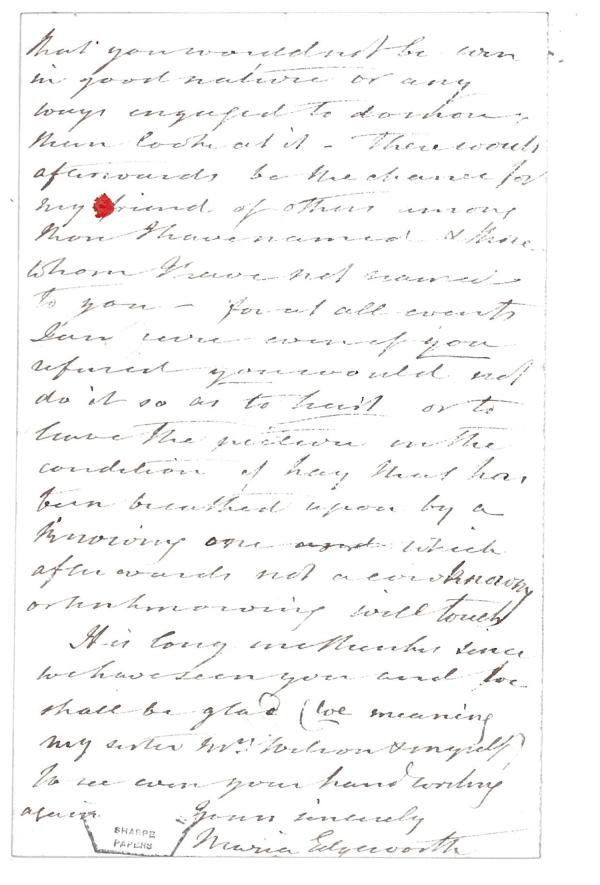 that you would not be even
in good nature or any
ways engaged to do more
than look at it - There would
afterwards be the chance for
my friend of others among
them I have named & those
whom I have not named
to you - for at all events
I am sure even if you
refused you would not
do it so as to hurt or to
leave the picture in the
condition of hay that has
been breathed upon by a
Knowing one and which
afterwards not a cow knowing
or unknowing will touch
It is long in months since
we have seen you and we
shall be glad (we meaning
my sister Mrs. Wilson & myself)
to see even your hand writing
again
Yours sincerely
Maria Edgeworth
SHARPE
PAPERS